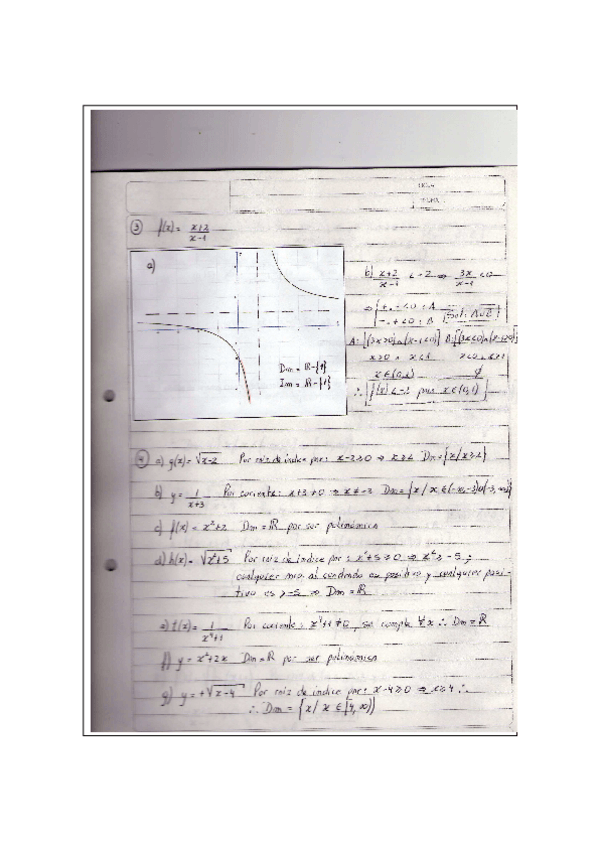 HOJA
FECHA
③ f(x) = x+2 / x-1
a)
Dm = ℝ-{1}
Im = ℝ-{1}
b) x+2 / x-1 < -2 ⇒ 3x / x-1 < 0
⇒ { +.- < 0 : A
-.+ < 0 : B Sol: A∪B
A: [(3x>0)∧(x-1<0)] B: [(3x<0)∧(x-1>0)]
x>0 ∧ x<1 x<0 ∧ x>1
x∈(0,1) ∅
∴ f(x) < -2 para x∈(0,1)
④ a) g(x) = √x-2 Por raíz de índice par: x-2≥0 ⇒ x≥2 Dm={x/x≥2}
b) y = 1 / x+3 Por cociente: x+3≠0 ⇒ x≠-3 Dm={x/x∈(-∞,-3)∪(-3,∞)}
c) f(x) = x²+2 Dm=ℝ por ser polinómica
d) h(x) = √x²+5 Por raíz de índice par: x²+5≥0 ⇒ x²≥-5;
cualquier nro. al cuadrado es positivo y cualquier posi-
tivo es >-5 ⇒ Dm=ℝ
e) t(x) = 1 / x⁴+1 Por cociente: x⁴+1≠0, se cumple ∀x ∴ Dm=ℝ
f) y = x²+2x Dm=ℝ por ser polinómica
g) y = +√x-4 Por raíz de índice par: x-4≥0 ⇒ x≥4 ∴
∴ Dm = {x/ x∈[4,∞)}